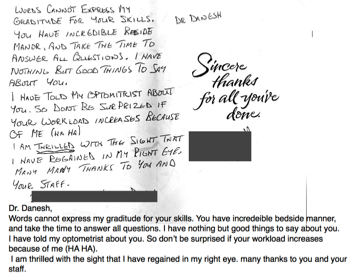 WORDS CANNOT EXPRESS MY
GRADITUDE FOR YOUR SKILLS.
YOU HAVE INCREDIBLE BEDSIDE
MANOR, AND TAKE THE TIME TO
ANSWER ALL QUESTIONS. I HAVE
NOTHING BUT GOOD THINGS TO SAY
ABOUT YOU.
I HAVE TOLD MY OPTOMITRIST ABOUT
YOU. SO DON'T BE SURPRIZED IF
YOUR WORKLOAD INCREASES BECAUSE
OF ME (HA HA)
I AM THRILLED WITH THE SIGHT THAT
I HAVE REGAINED IN MY RIGHT EYE.
MANY MANY THANKS TO YOU AND
YOUR STAFF.
DR DANESH
Sincere
thanks
for all you've
done.
Dr. Danesh,
Words cannot express my graditude for your skills. You have incredeible bedside manner,
and take the time to answer all questions. I have nothing but good things to say about you.
I have told my optometrist about you. So don't be surprised if your workload increases
because of me (HA HA).
I am thrilled with the sight that I have regained in my right eye. many thanks to you and your
staff.